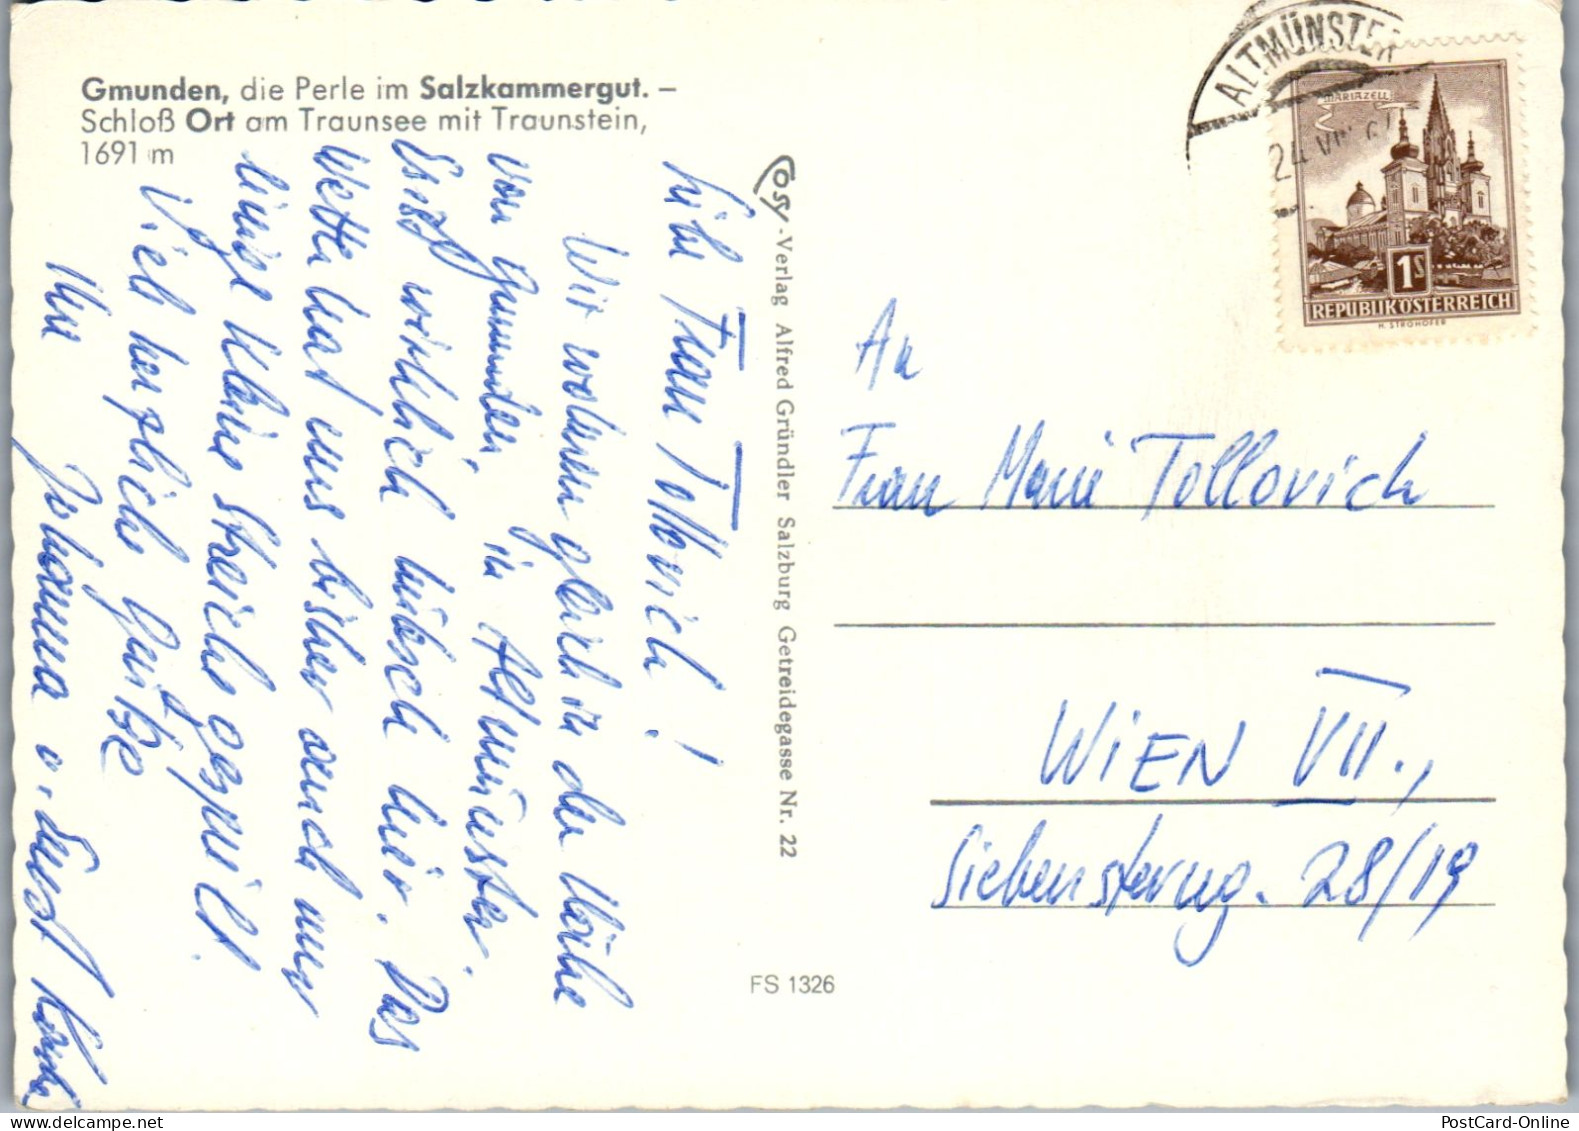 Gmunden, die Perle im Salzkammergut. –
Schloß Ort am Traunsee mit Traunstein,
1691 m
Liebe Frau Tollovich!
Wir wohnen gleich in der Nähe
von Gmunden, in Altmünster.
Es ist wirklich hübsch hier. Das
Wetter hat uns bisher auch nur
einige kleine Streiche gespielt.
Viele herzliche Grüße
Ihre
Johanna u. Ernst
Cosy-Verlag Alfred Gründler Salzburg Getreidegasse Nr. 22
FS 1326
ALTMÜNSTER
24 VIII
MARIAZELL
1S
REPUBLIK ÖSTERREICH
H. STROHOFER
An
Frau Marie Tollovich
WIEN VII.,
Siebensterng. 28/19
PostCard-Online